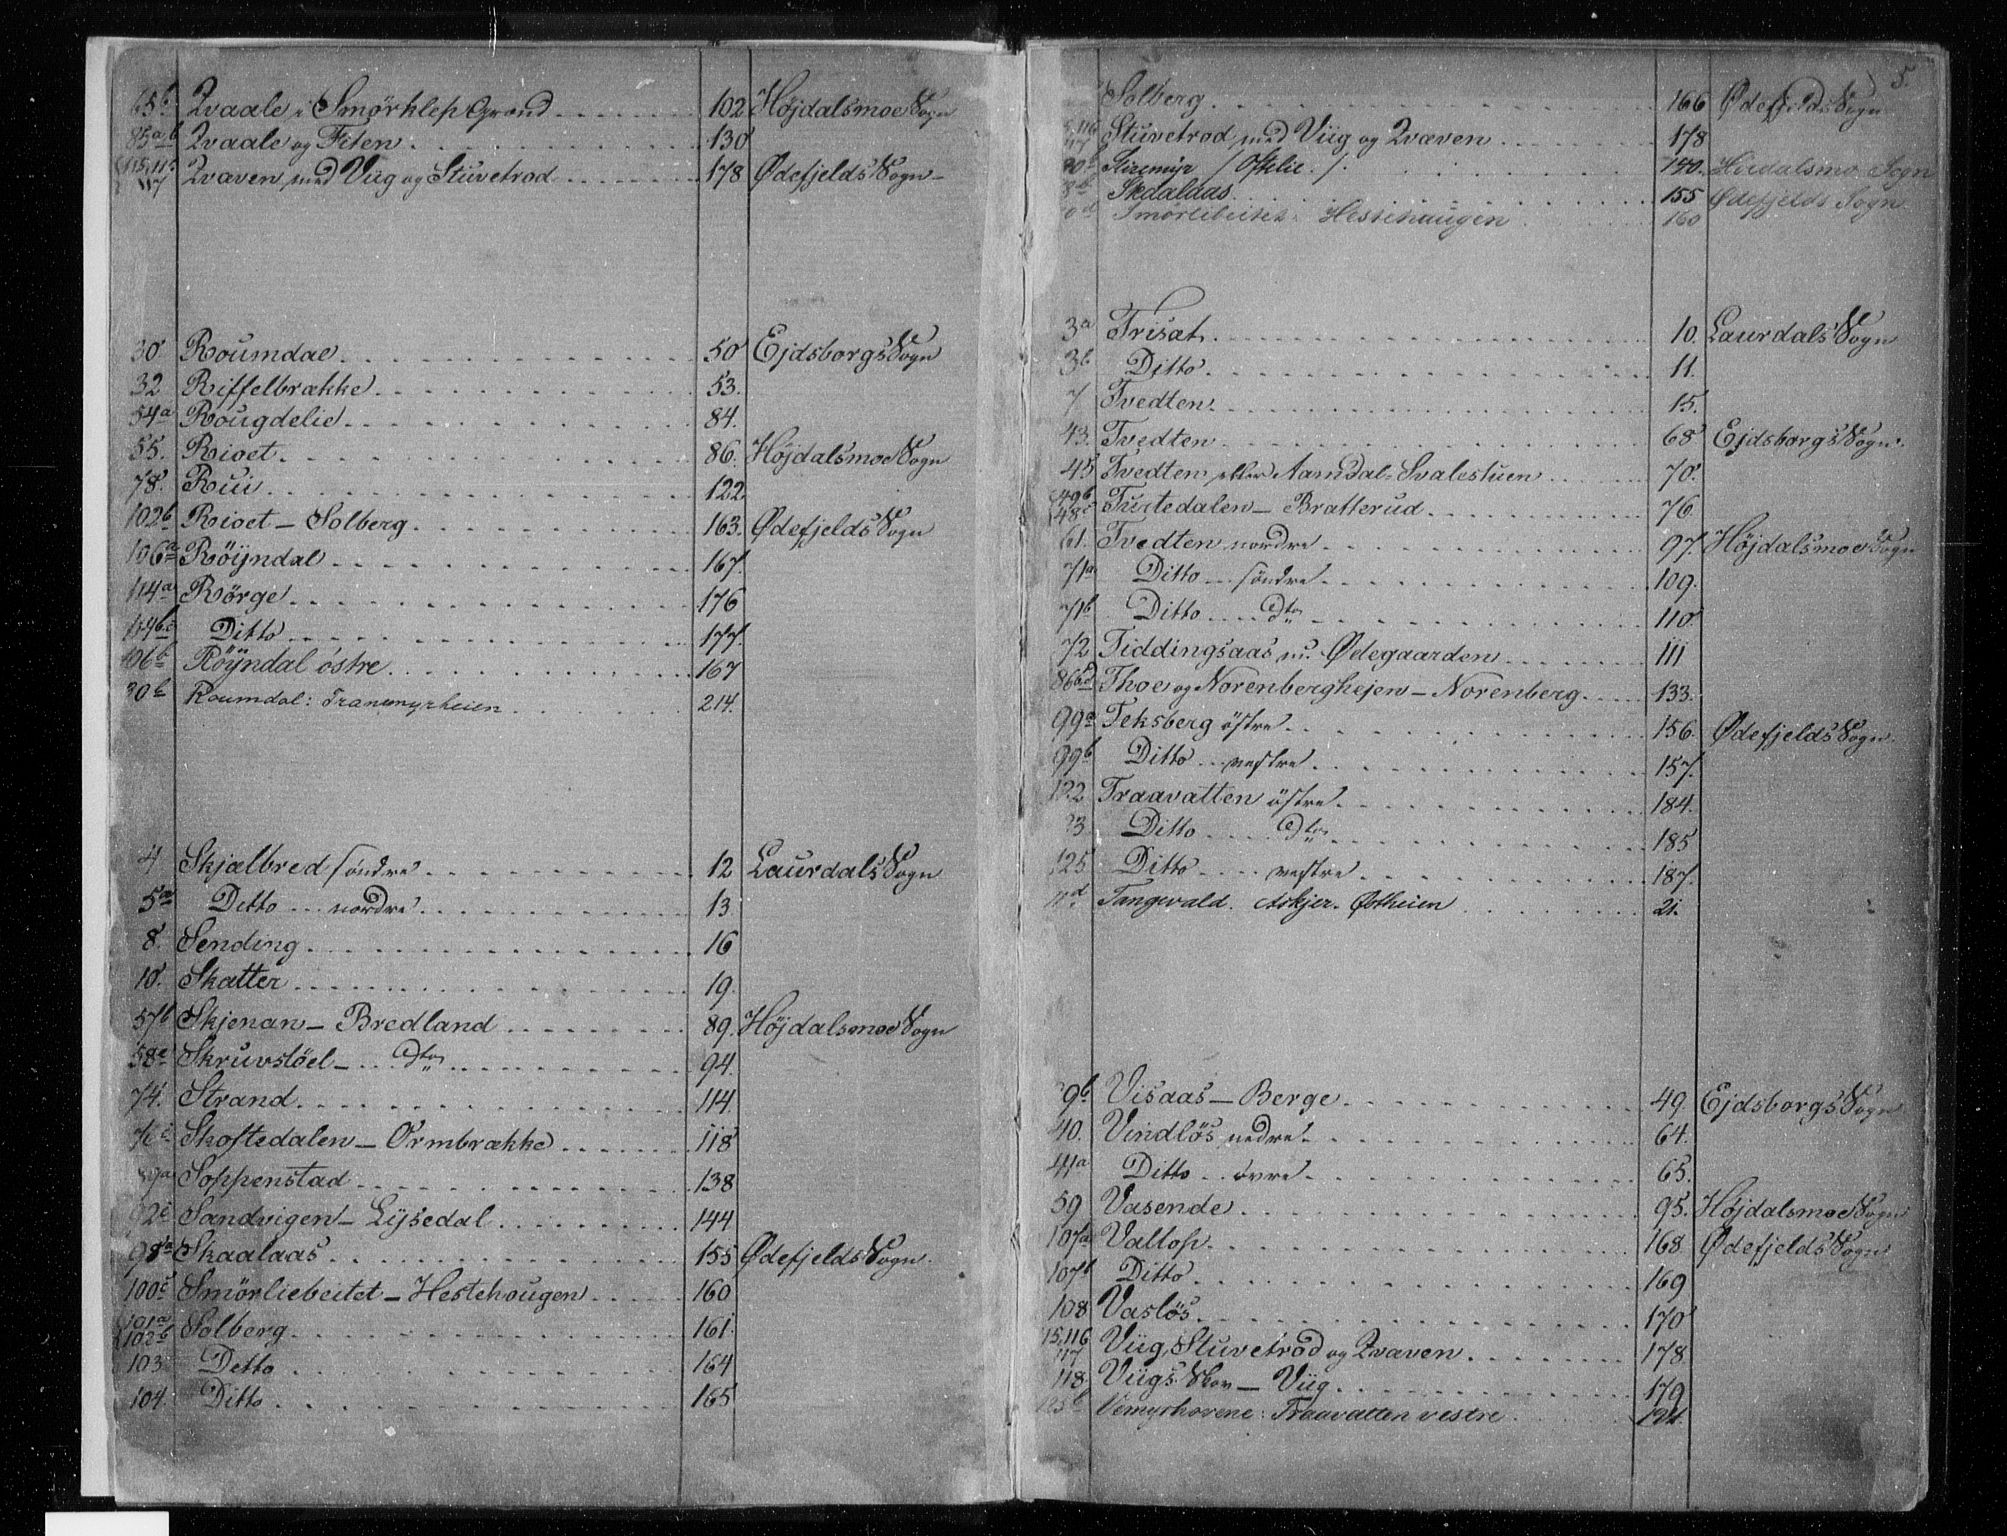 65b Qvaale i Smørklep Grond 102 Højdalsmoe Sogn
85ab Qvaale og Fiten 130
115, 116, 117 Qvæven med Viig og Stuvetrod 178 Ødefjelds Sogn
30 Roumdal 50 Ejdsborgs Sogn
32 Riffelbrække 53.
54a Rougdelie 84.
55. Rioet 86. Højdalsmoe Sogn
78. Rui 122.
102b Rioet - Solberg 163. Ødefjelds Sogn
106a Röÿndal 167.
114a Rörge 176
114b.c Ditto 177.
106b Röÿndal östre 167
30b Roumdal: Tranemyrheien 214.
4 Skjælbred söndre 12 Laurdals Sogn
5a Ditto nordre 13
8. Sending 16
10. Skatter 19.
57b Skjenan - Bredland 89. Højdalsmoe Sogn
58e Skruvstöel - dto 94.
74. Strand 114.
76c Skoftedalen - Ormbrække 118
89a Soppenstad 138
92c Sandvigen - Lÿsedal 144
98a Skaalaas 155 Ødefjelds Sogn.
100c Smörliebeitet - Hestehougen 160
101a 102b Solberg 161.
103 Detto 164
104. Ditto 165
5.
Solberg 166 Ødefjelds Sogn
116 117 Stuvetrod med Viig og Qvæven 178
Stiremÿr / Oftelie / 140. Høidalsmo Sogn
Skdalaas 155 Ødefjelds Sogn
Smörlibeitet: Hestehaugen 160
3a Trisæt 10. Laurdals Sogn
3b Ditto 11.
7 Tvedten 15.
43. Tvedten 68 Ejdsborgs Sogn.
45 Tvedten eller Aamdal-Svalestuen 70.
49b 48c Turtedalen - Bratterud 76.
61. Tvedten nordre 97. Højdalsmoe Sogn
71a Ditto söndre 109.
71b Ditto dto 110.
72 Tiddingsaas m. Ødegaarden 111
86b.d Thoe og Norenberghejen - Norenberg 133.
99a Teksberg östre 156. Ødefjelds Sogn.
99b Ditto vestre 157.
122 Traavatten östre 184.
23. Ditto dto 185
125 Ditto vestre 187.
11d Tangevald. Askjer. Østheien 21.
9b Visaas - Berge 49. Ejdsborgs Sogn
40. Vindlös nedre 64.
41a Ditto övre 65.
59 Vasende 95. Højdalsmoe Sogn
107a Vallop 168 Ødefjelds Sogn
107b Ditto 169
108 Vaslös 170
15, 116 117 Viig, Stuvetrod og Qvæven 178
118 Viigs Skov - Viig 179
125b Vemyrhovene: Traavatten vestre 191.